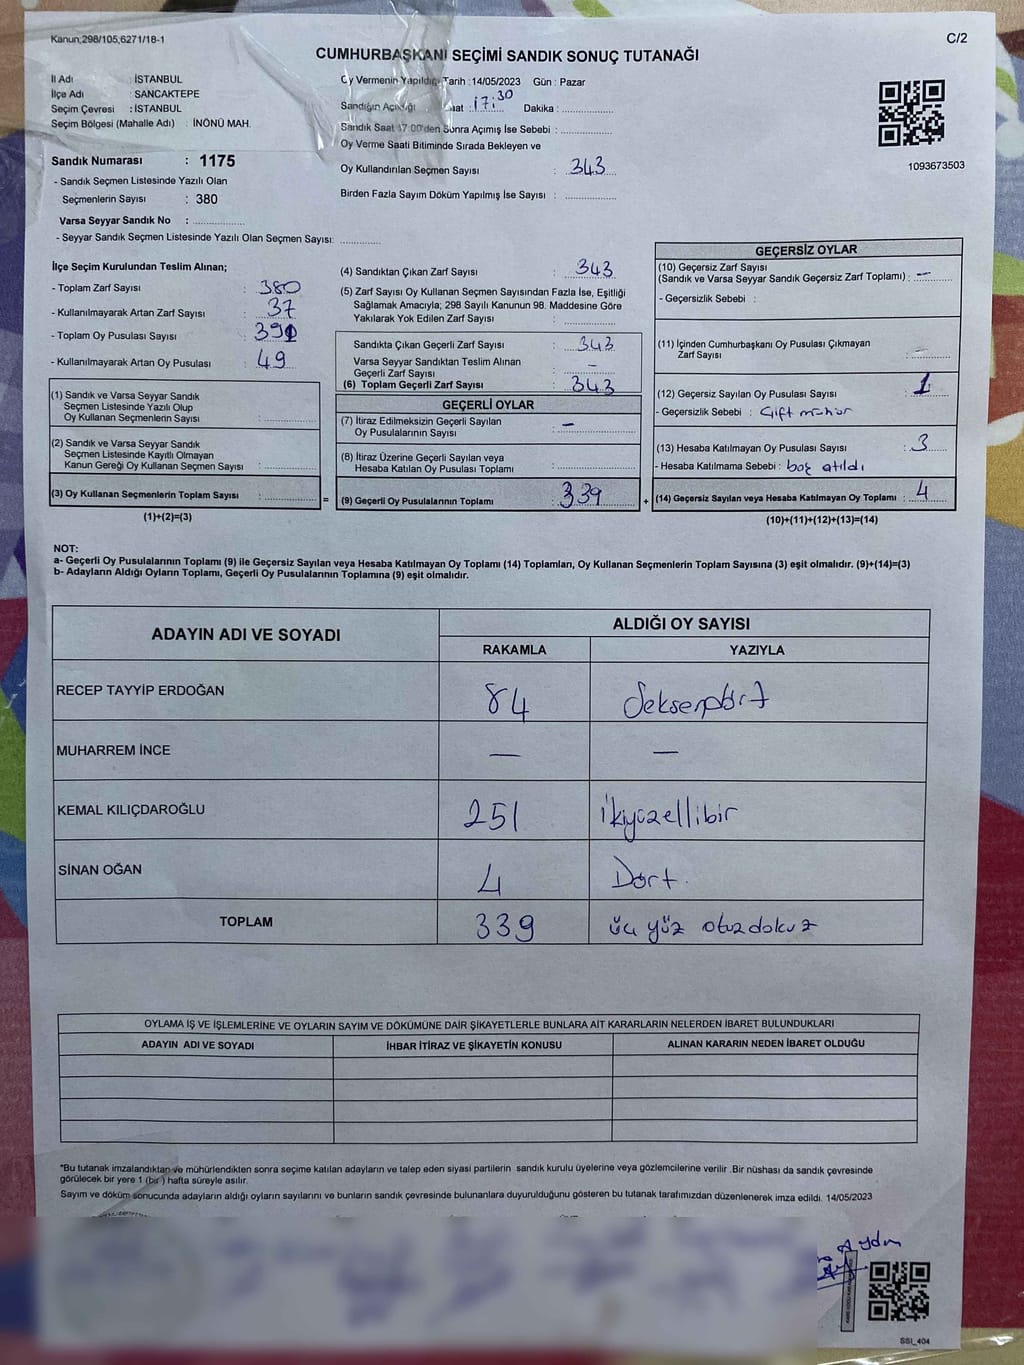 Kanun;298/105,6271/18-1
C/2
CUMHURBAŞKANI SEÇİMİ SANDIK SONUÇ TUTANAĞI
İl Adı : İSTANBUL
İlçe Adı : SANCAKTEPE
Seçim Çevresi : İSTANBUL
Seçim Bölgesi (Mahalle Adı) : İNÖNÜ MAH.
Oy Vermenin Yapıldığı Tarih : 14/05/2023 Gün : Pazar
Sandığın Açıldığı Saat : 17:30 Dakika : ..............
Sandık Saat 17:00'den Sonra Açımış İse Sebebi : ..............
Oy Verme Saati Bitiminde Sırada Bekleyen ve
Oy Kullandırılan Seçmen Sayısı : 343
Birden Fazla Sayım Döküm Yapılmış İse Sayısı : ..............
1093673503
Sandık Numarası : 1175
- Sandık Seçmen Listesinde Yazılı Olan
Seçmenlerin Sayısı : 380
Varsa Seyyar Sandık No : ..............
- Seyyar Sandık Seçmen Listesinde Yazılı Olan Seçmen Sayısı: ............
İlçe Seçim Kurulundan Teslim Alınan;
- Toplam Zarf Sayısı : 380
- Kullanılmayarak Artan Zarf Sayısı : 37
- Toplam Oy Pusulası Sayısı : 391
- Kullanılmayarak Artan Oy Pusulası : 49
(1) Sandık ve Varsa Seyyar Sandık
Seçmen Listesinde Yazılı Olup
Oy Kullanan Seçmenlerin Sayısı : ..............
(2) Sandık ve Varsa Seyyar Sandık
Seçmen Listesinde Kayıtlı Olmayan
Kanun Gereği Oy Kullanan Seçmen Sayısı : ..............
(3) Oy Kullanan Seçmenlerin Toplam Sayısı : .............. =
(1)+(2)=(3)
(4) Sandıktan Çıkan Zarf Sayısı : 343
(5) Zarf Sayısı Oy Kullanan Seçmen Sayısından Fazla İse, Eşitliği
Sağlamak Amacıyla; 298 Sayılı Kanunun 98. Maddesine Göre
Yakılarak Yok Edilen Zarf Sayısı : ..............
Sandıkta Çıkan Geçerli Zarf Sayısı : 343
Varsa Seyyar Sandıktan Teslim Alınan
Geçerli Zarf Sayısı : –
(6) Toplam Geçerli Zarf Sayısı : 343
GEÇERLİ OYLAR
(7) İtiraz Edilmeksizin Geçerli Sayılan
Oy Pusulalarının Sayısı : –
(8) İtiraz Üzerine Geçerli Sayılan veya
Hesaba Katılan Oy Pusulası Toplamı : ..............
(9) Geçerli Oy Pusulalarının Toplamı : 339 +
GEÇERSİZ OYLAR
(10) Geçersiz Zarf Sayısı
(Sandık ve Varsa Seyyar Sandık Geçersiz Zarf Toplamı) : –
- Geçersizlik Sebebi :
(11) İçinden Cumhurbaşkanı Oy Pusulası Çıkmayan
Zarf Sayısı : –
(12) Geçersiz Sayılan Oy Pusulası Sayısı : 1
- Geçersizlik Sebebi : Çift mühür
(13) Hesaba Katılmayan Oy Pusulası Sayısı : 3
- Hesaba Katılmama Sebebi : boş atıldı
(14) Geçersiz Sayılan veya Hesaba Katılmayan Oy Toplamı : 4
(10)+(11)+(12)+(13)=(14)
NOT:
a- Geçerli Oy Pusulalarının Toplamı (9) ile Geçersiz Sayılan veya Hesaba Katılmayan Oy Toplamı (14) Toplamları, Oy Kullanan Seçmenlerin Toplam Sayısına (3) eşit olmalıdır. (9)+(14)=(3)
b- Adayların Aldığı Oyların Toplamı, Geçerli Oy Pusulalarının Toplamına (9) eşit olmalıdır.
ADAYIN ADI VE SOYADI
ALDIĞI OY SAYISI
RAKAMLA YAZIYLA
RECEP TAYYİP ERDOĞAN 84 Seksendört
MUHARREM İNCE — —
KEMAL KILIÇDAROĞLU 251 İkiyüzellibir
SİNAN OĞAN 4 Dört.
TOPLAM 339 üç yüz otuzdokuz
OYLAMA İŞ VE İŞLEMLERİNE VE OYLARIN SAYIM VE DÖKÜMÜNE DAİR ŞİKAYETLERLE BUNLARA AİT KARARLARIN NELERDEN İBARET BULUNDUKLARI
ADAYIN ADI VE SOYADI İHBAR İTİRAZ VE ŞİKAYETİN KONUSU ALINAN KARARIN NEDEN İBARET OLDUĞU
*Bu tutanak imzalandıktan ve mühürlendikten sonra seçime katılan adayların ve talep eden siyasi partilerin sandık kurulu üyelerine veya gözlemcilerine verilir .Bir nüshası da sandık çevresinde
görülecek bir yere 1 (bir ) hafta süreyle asılır.
Sayım ve döküm sonucunda adayların aldığı oyların sayılarını ve bunların sandık çevresinde bulunanlara duyurulduğunu gösteren bu tutanak tarafımızdan düzenlenerek imza edildi. 14/05/2023
Aydın
SSI_404